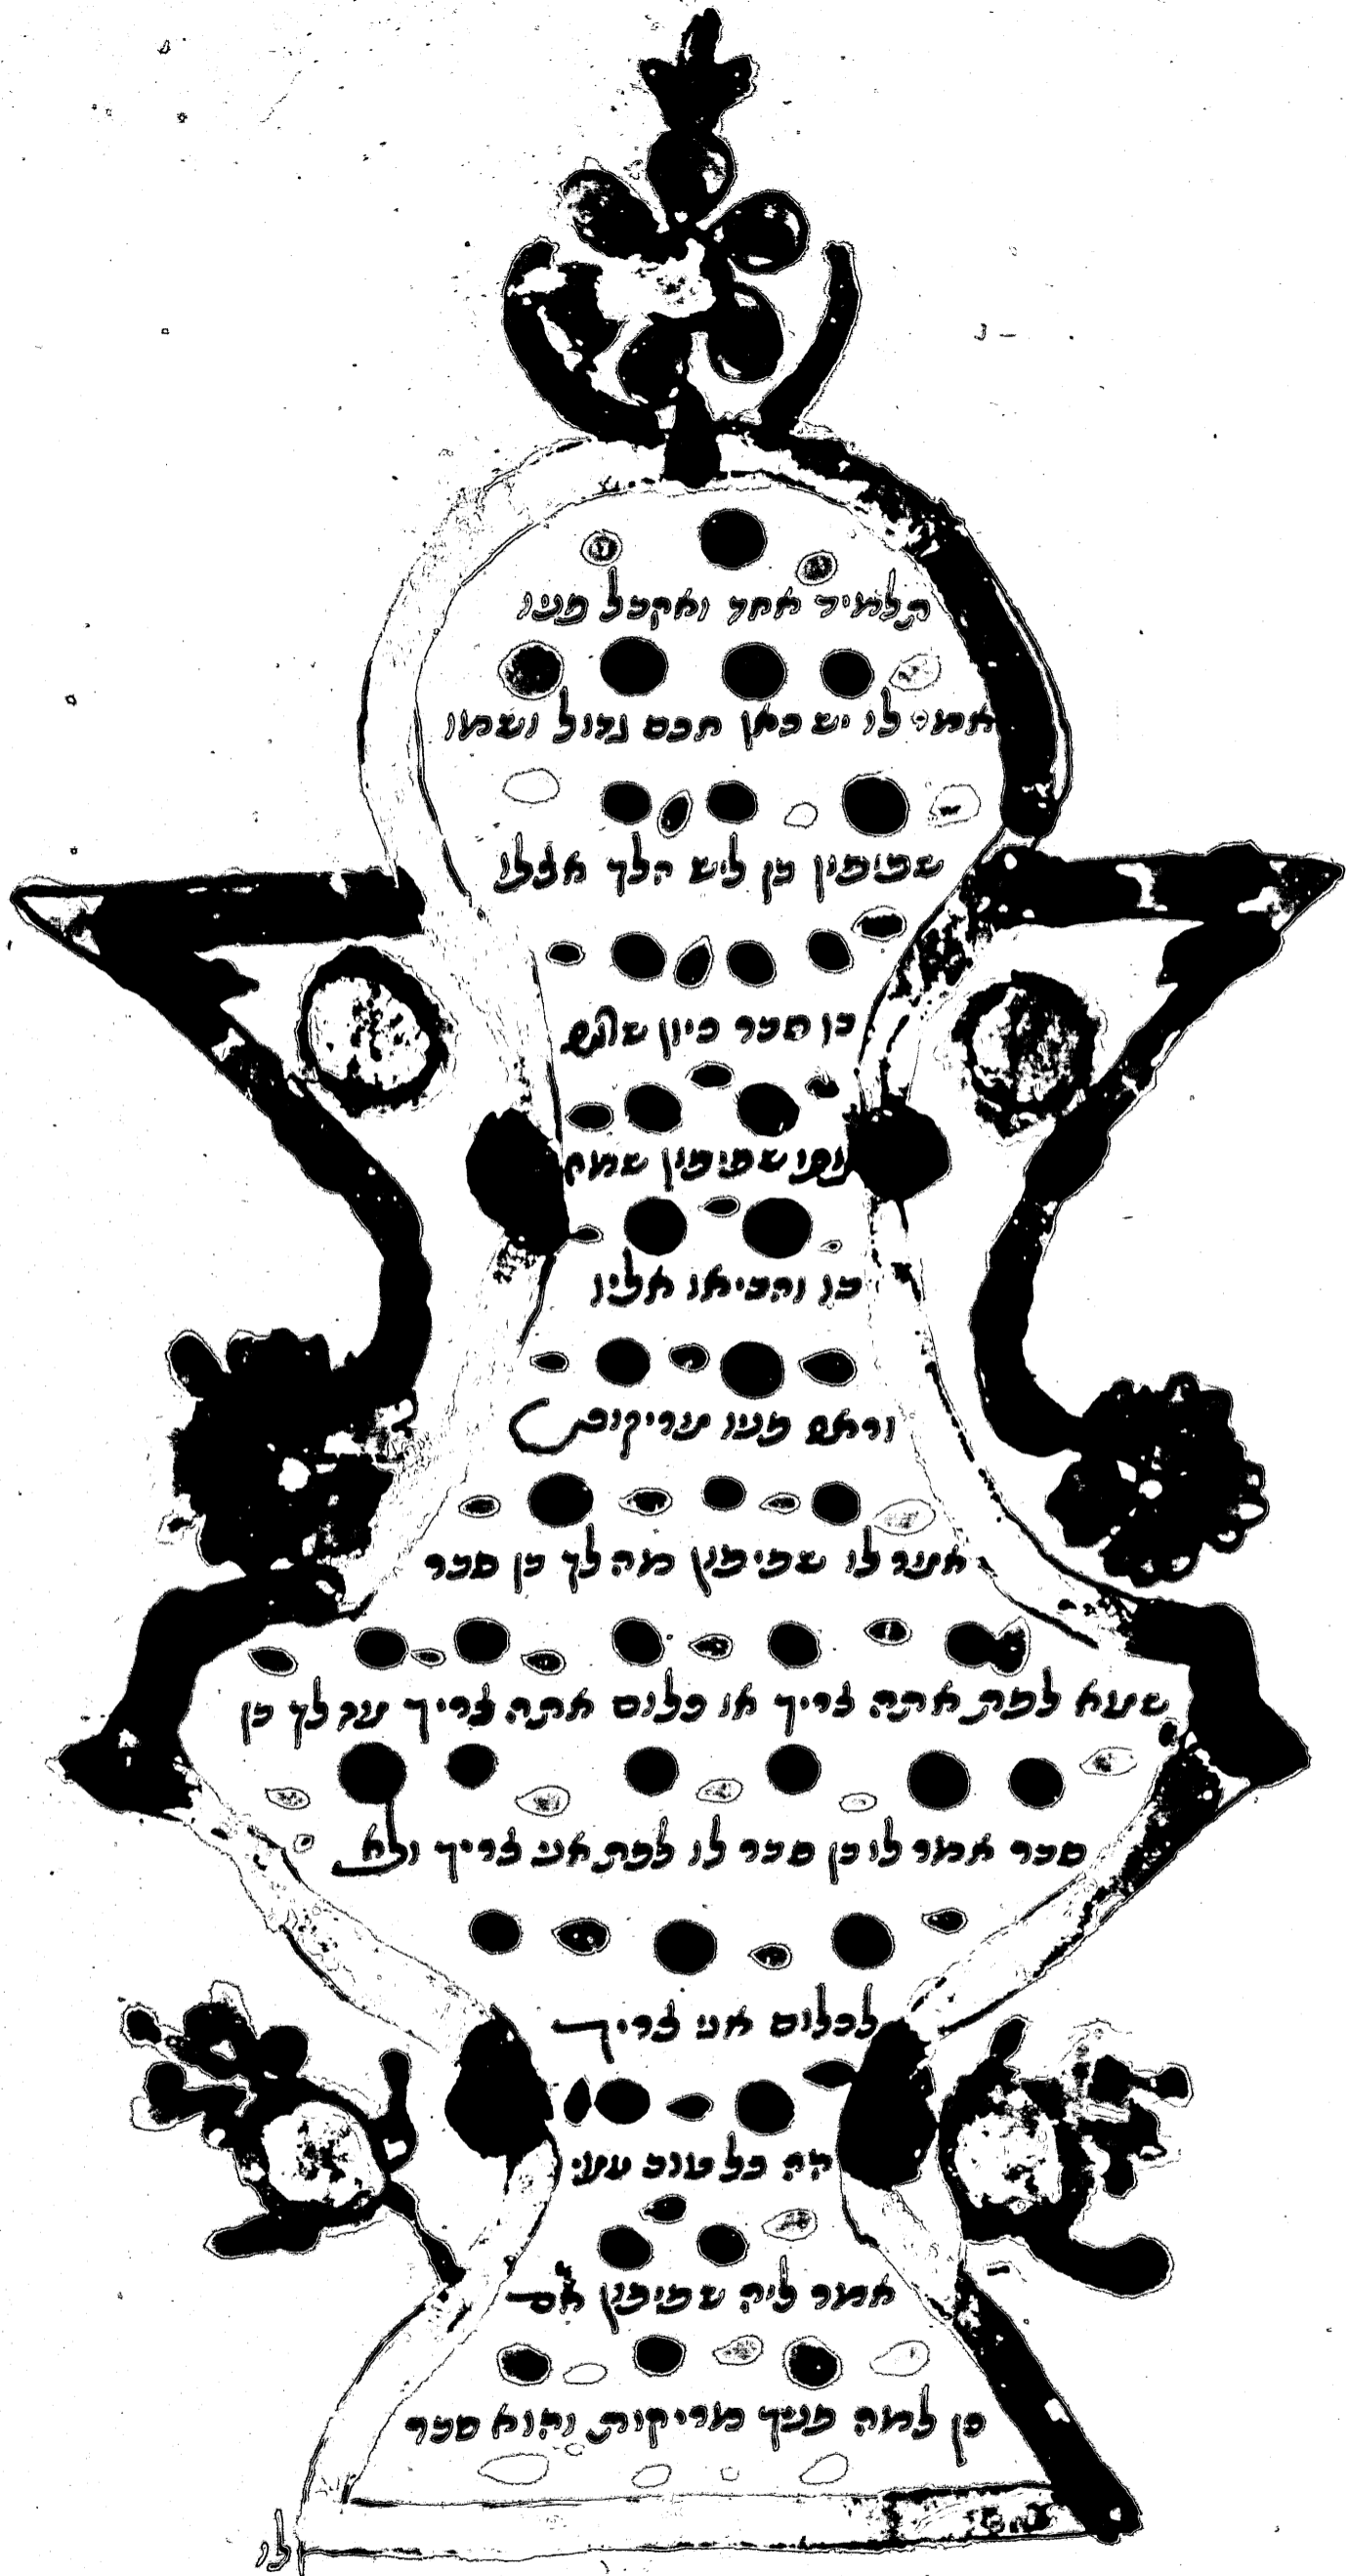 תלמיד אחד ואקבל פניו
אמ׳ לו יש כאן חכם גדול ושמו
שבימון בן ליש הלך אצלו
בן סבר כיון
שבימון שמח
בו והביאו אליו
וראה פניו מוריקות
אמר לו שבימון מה לך בן סבר
שמא לבת אתה צריך או כלום אתה צריך אמ׳ לך בן
סבר אמר לו בן סבר לו לבת אני צריך ולא
לכלום אני צריך
היה כל טוב עמי
אמר ליה שבימון אם
כן למה פניך מוריקות והוא סבר
לו